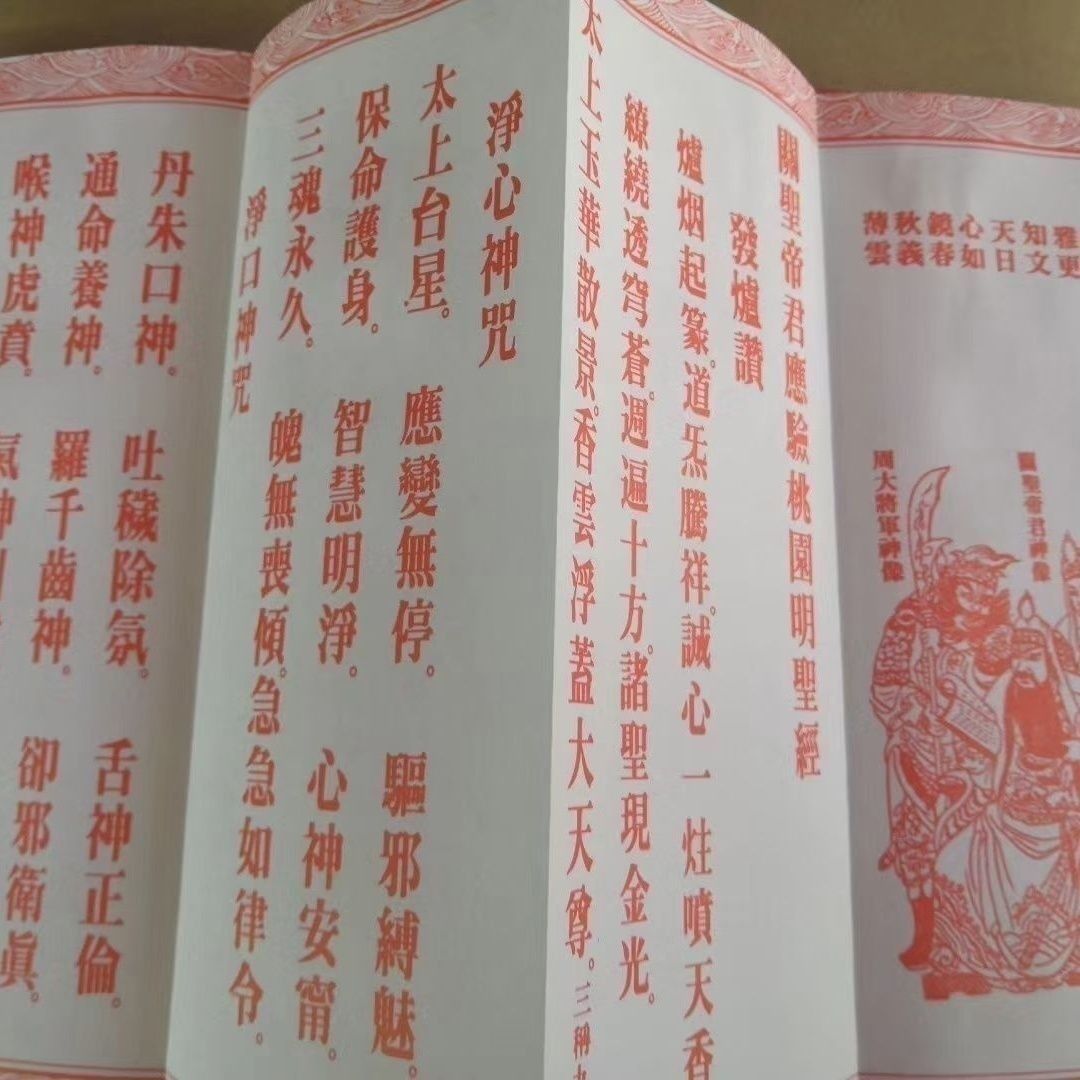 雅更
知文
天日
心如
鏡春
秋義
薄雲
關聖帝君神像
周大將軍神像
關聖帝君應驗桃園明聖經
發爐讚
爐烟起篆。道炁騰祥。誠心一炷噴天香
繚繞透穹蒼。週遍十方。諸聖現金光。
太上玉華散景。香雲浮蓋大天尊。三稱
淨心神咒
太上台星。應變無停。驅邪縛魅。
保命護身。智慧明淨。心神安甯。
三魂永久。魄無喪傾。急急如律令。
淨口神咒
丹朱口神。吐穢除氛。舌神正倫。
通命養神。羅千齒神。卻邪衛眞。
喉神虎賁。炁神引